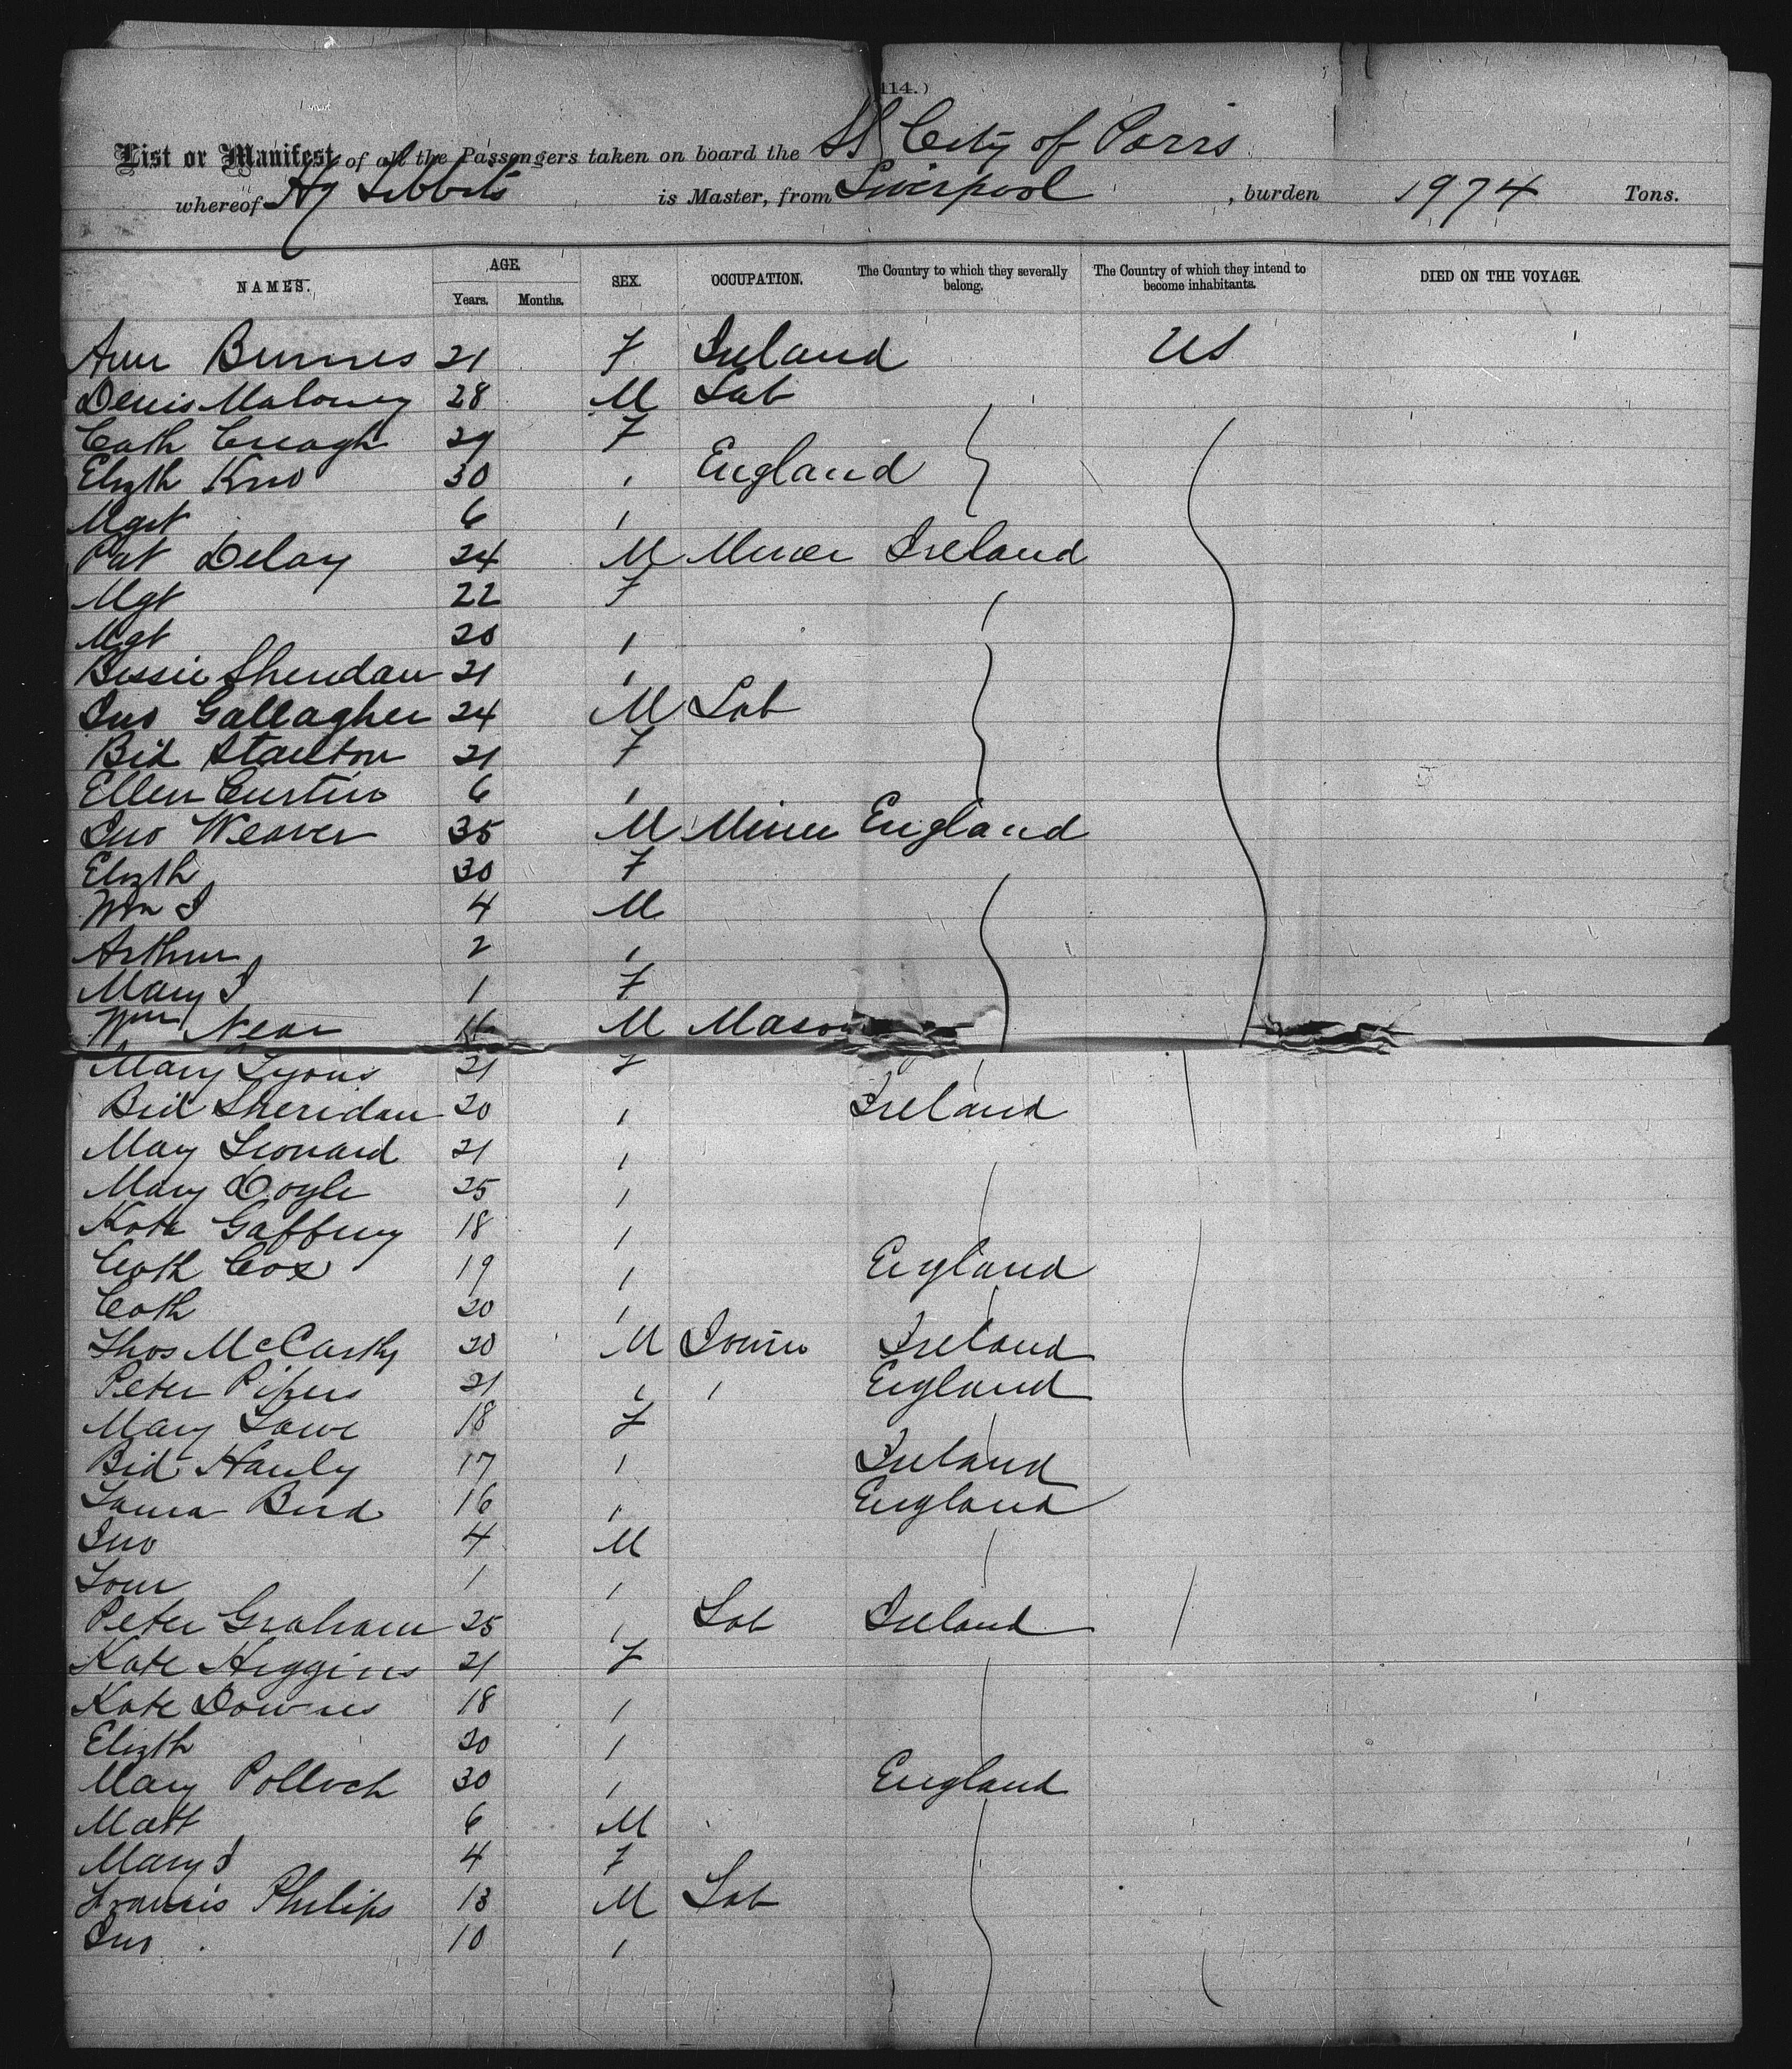 114.)
List or Manifest of all the Passengers taken on board the SS City of Paris
whereof Hy Tibbits is Master, from Liverpool, burden 1974 Tons.
NAMES. AGE. SEX. OCCUPATION. The Country to which they severally belong. The Country of which they intend to become inhabitants. DIED ON THE VOYAGE.
Years. Months.
Ann Burnes 21 F Ireland US
Denis Maloney 28 M Lab
Cath Creagh 29 F
Elizth 30 England
Mgrt 6
Pat Delay 24 M Miner Ireland
Mgt 22 F
Mgt 20
Bessie Sheridan 21
Jno Gallagher 24 M Lab
Bid Stanton 21 F
Ellen Curtin 6
Jno Weaver 35 M Miner England
Elizth 30 F
Wm J 4 M
Arthur 2
Mary J 1 F
Wm Near M Mason
Mary Lyons 21 F
Bid Sheridan 20 Ireland
Mary Leonard 21
Mary Doyle 25
Kate Gaffney 18
Cath Cox 19 England
Cath 20
Thos McCarthy 20 M Ireland
Peter Pipers 21 England
Mary Lowe 18 F
Bid Hanly 17 Ireland
Laura Bird 16 England
Jno 4 M
1
Peter Graham 25 Lab Ireland
Kate Higgins 21 F
Kate Downes 18
Elizth 20
Mary Polloch 30 England
Matt 6 M
Mary J 4 F
Francis Philips 13 M Lab
Jno 10